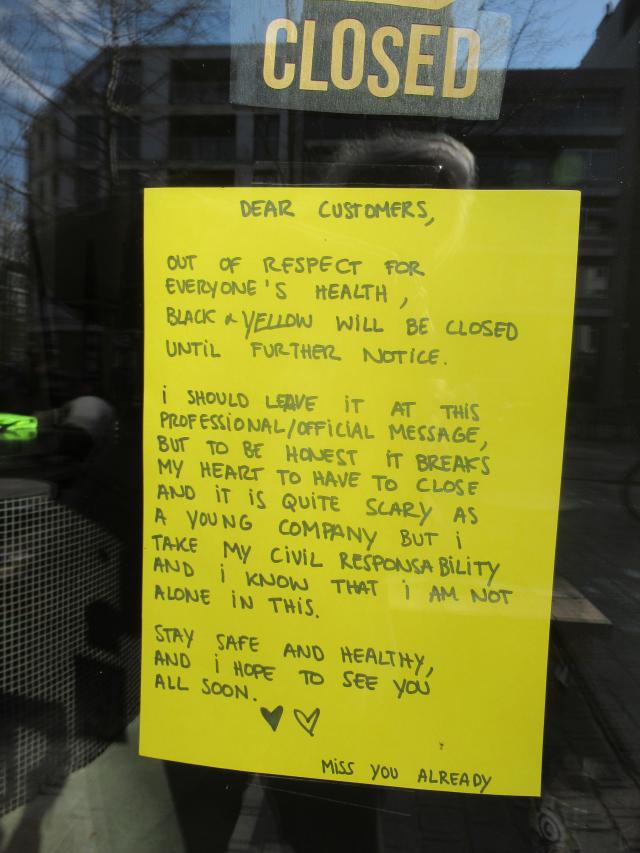 CLOSED
DEAR CUSTOMERS,
OUT OF RESPECT FOR
EVERYONE'S HEALTH,
BLACK & YELLOW WILL BE CLOSED
UNTIL FURTHER NOTICE.
i SHOULD LEAVE IT AT THIS
PROFESSIONAL/OFFICIAL MESSAGE,
BUT TO BE HONEST IT BREAKS
MY HEART TO HAVE TO CLOSE
AND IT IS QUITE SCARY AS
A YOUNG COMPANY BUT i
TAKE MY CIVIL RESPONSABILITY
AND i KNOW THAT i AM NOT
ALONE IN THIS.
STAY SAFE AND HEALTHY,
AND i HOPE TO SEE YOU
ALL SOON.
MISS YOU ALREADY